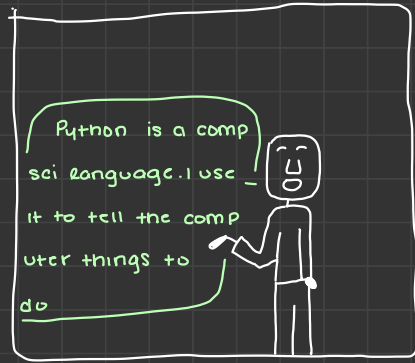 Python is a comp
sci language. I use
it to tell the comp
uter things to
do